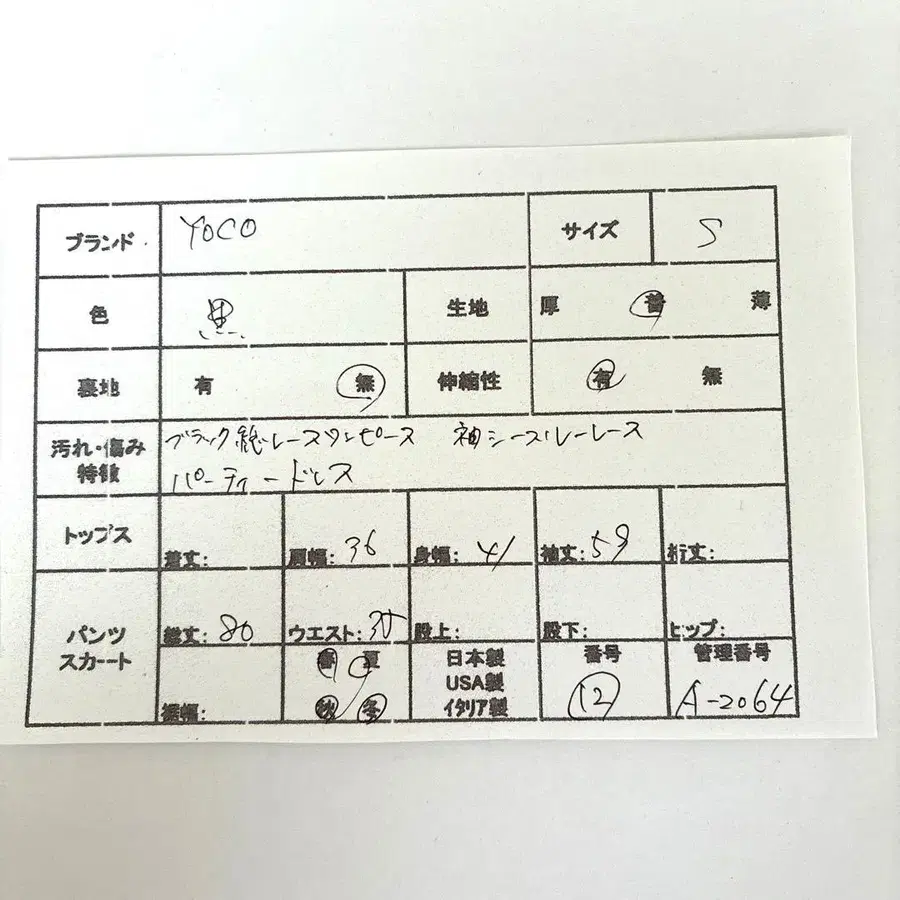 ブランド YOCO サイズ S
色 黒 生地 厚 普 薄
裏地 有 無 伸縮性 有 無
汚れ・傷み ブラック総レースワンピース 袖シースルーレース
特徴 パーティードレス
トップス 着丈: 肩幅: 36 身幅: 41 袖丈: 59 裄丈:
パンツ 総丈: 80 ウエスト: 35 股上: 股下: ヒップ:
スカート 裾幅: 春 夏 日本製 番号 管理番号
USA製
秋 冬 イタリア製 12 A-2064